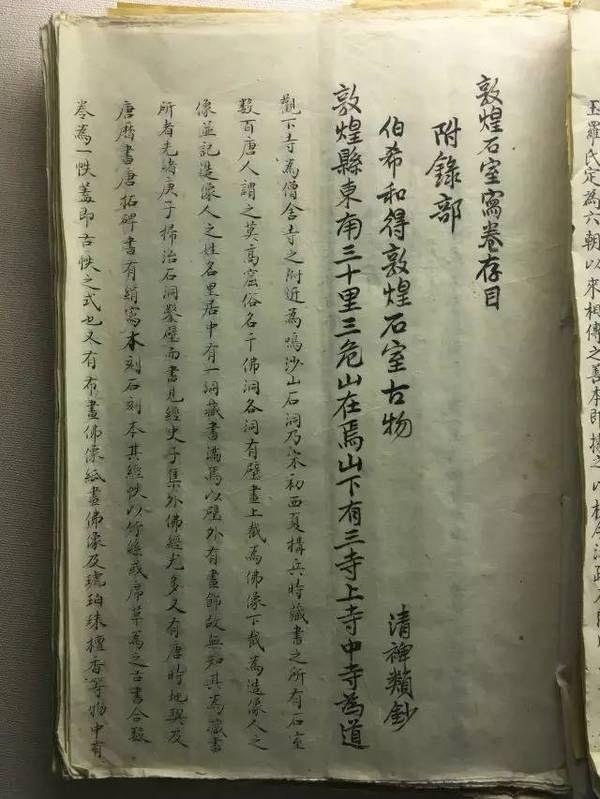 玉羅氏定為六朝以來相傳之善本即據之以校今法
敦煌石室寫卷存目
附錄部
伯希和得敦煌石室古物 清稗類鈔
敦煌縣東南三十里三危山在焉山下有三寺上寺中寺為道
觀下寺為僧舍寺之附近為鳴沙山石洞乃宋初西夏構兵時藏書之所有石室
数百唐人謂之莫高窟俗名千佛洞各洞有壁畫上截為佛像下截為造像人之
像並記造像人之姓名里居中有一洞藏書滿焉以壁外有畫飾故無知其為藏書
所者光緒庚子掃治石洞鑿壁而書見經史子集外佛經尤多又有唐時地契及
唐曆書唐拓碑書有絹寫本刻石刻本其經帙以竹絲或席草為之古書合數
卷為一帙蓋即古帙之式也又有布畫佛像紙畫佛像及琥珀珠檀香等物中有